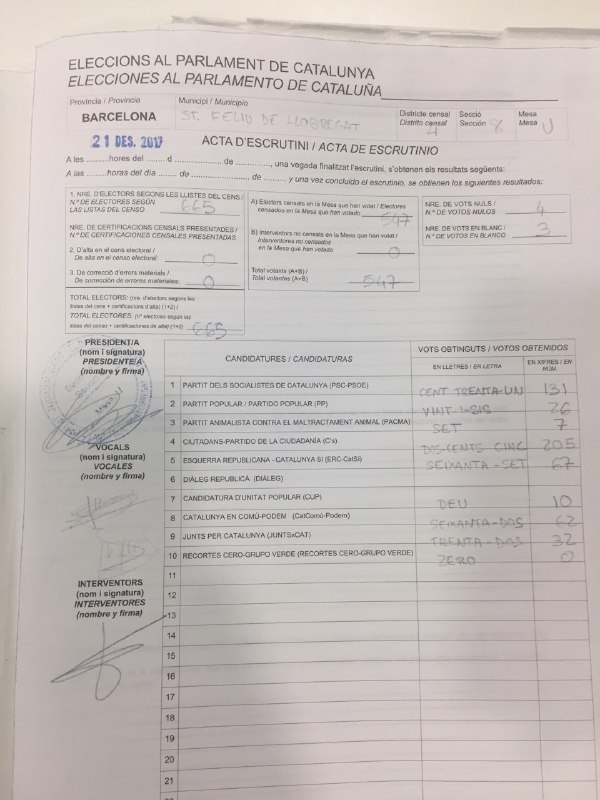 ELECCIONS AL PARLAMENT DE CATALUNYA
ELECCIONES AL PARLAMENTO DE CATALUÑA
Província / Provincia
BARCELONA
Municipi / Municipio
ST. FELIU DE LLOBREGAT
Districte censal
Distrito censal
4
Secció
Sección
8
Mesa
Mesa
U
21 DES. 2017
ACTA D'ESCRUTINI / ACTA DE ESCRUTINIO
A les ..........hores del ........ d .................... de ............, una vegada finalitzat l'escrutini, s'obtenen els resultats següents:
A las ..........hores del día ........ de .................... de ............ y una vez concluido el escrutinio, se obtienen los siguientes resultados:
1. NRE. D'ELECTORS SEGONS LES LLISTES DEL CENS /
N.º DE ELECTORES SEGÚN
LAS LISTAS DEL CENSO
665
NRE. DE CERTIFICACIONS CENSALS PRESENTADES /
N.º DE CERTIFICACIONES CENSALES PRESENTADAS
2. D'alta en el cens electoral /
De alta en el censo electoral:
0
3. De correcció d'errors materials /
De corrección de errores materiales:
0
TOTAL ELECTORS: (nre. d'electors segons les
llistes del cens + certificacions d'alta) (1+2) /
TOTAL ELECTORES: (n.º electores según las
listas del censo + certificaciones de alta) (1+2)
665
A) Electors censats en la Mesa que han votat / Electores
censados en la Mesa que han votado
547
B) Interventors no censats en la Mesa que han votat /
Interventores no censados
en la Mesa que han votado
0
Total votants (A+B) /
Total votantes (A+B)
547
NRE. DE VOTS NULS /
N.º DE VOTOS NULOS
4
NRE. DE VOTS EN BLANC /
N.º DE VOTOS EN BLANCO
3
PRESIDENT/A
(nom i signatura)
PRESIDENTE/A
(nombre y firma)
VOCALS
(nom i signatura)
VOCALES
(nombre y firma)
INTERVENTORS
(nom i signatura)
INTERVENTORES
(nombre y firma)
CANDIDATURES / CANDIDATURAS
VOTS OBTINGUTS / VOTOS OBTENIDOS
EN LLETRES / EN LETRA
EN XIFRES / EN
NÚM.
1 PARTIT DELS SOCIALISTES DE CATALUNYA (PSC-PSOE) CENT TRENTA-UN 131
2 PARTIT POPULAR / PARTIDO POPULAR (PP) VINT-I-SIS 26
3 PARTIT ANIMALISTA CONTRA EL MALTRACTAMENT ANIMAL (PACMA) SET 7
4 CIUTADANS-PARTIDO DE LA CIUDADANÍA (C's) DOS-CENTS CINC 205
5 ESQUERRA REPUBLICANA - CATALUNYA SÍ (ERC-CatSí) SEIXANTA-SET 67
6 DIÀLEG REPUBLICÀ (DIÀLEG)
7 CANDIDATURA D'UNITAT POPULAR (CUP) DEU 10
8 CATALUNYA EN COMÚ-PODEM (CatComú-Podem) SEIXANTA-DOS 62
9 JUNTS PER CATALUNYA (JUNTSxCAT) TRENTA-DOS 32
10 RECORTES CERO-GRUPO VERDE (RECORTES CERO-GRUPO VERDE) ZERO 0
11
12
13
14
15
16
17
18
19
20
21